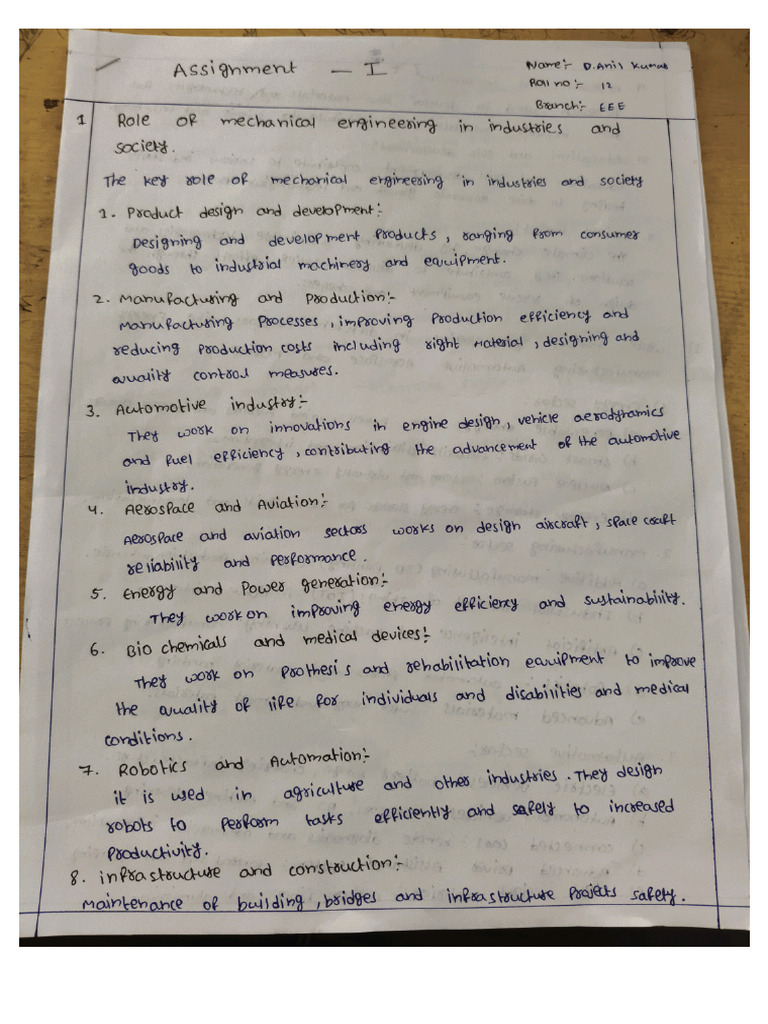 Assignment - I
Name:- D.Anil Kumar
Roll no:- 12
Branch:- EEE
1 Role of mechanical engineering in industries and
society.
The key role of mechanical engineering in industries and society
1. Product design and development:-
Designing and development Products, ranging from consumer
goods to industrial machinery and equipment.
2. Manufacturing and Production:-
Manufacturing Processes, improving Production efficiency and
reducing production costs including right Material, designing and
quality control measures.
3. Automotive industry:-
They work on innovations in engine design, vehicle aerodynamics
and fuel efficiency, contributing the advancement of the automotive
industry.
4. Aerospace and Aviation:-
Aerospace and aviation sectors works on design aircraft, space craft
reliability and Performance.
5. Energy and Power generation:-
They work on improving energy efficiency and sustainability.
6. Bio chemicals and medical devices:-
They work on Prothesis and rehabilitation equipment to improve
the quality of life for individuals and disabilities and medical
conditions.
7. Robotics and Automation:-
it is used in agriculture and other industries. They design
robots to perform tasks efficiently and safely to increased
Productivity.
8. infrastructure and construction:-
Maintenance of building, bridges and infrastructure Projects safety.